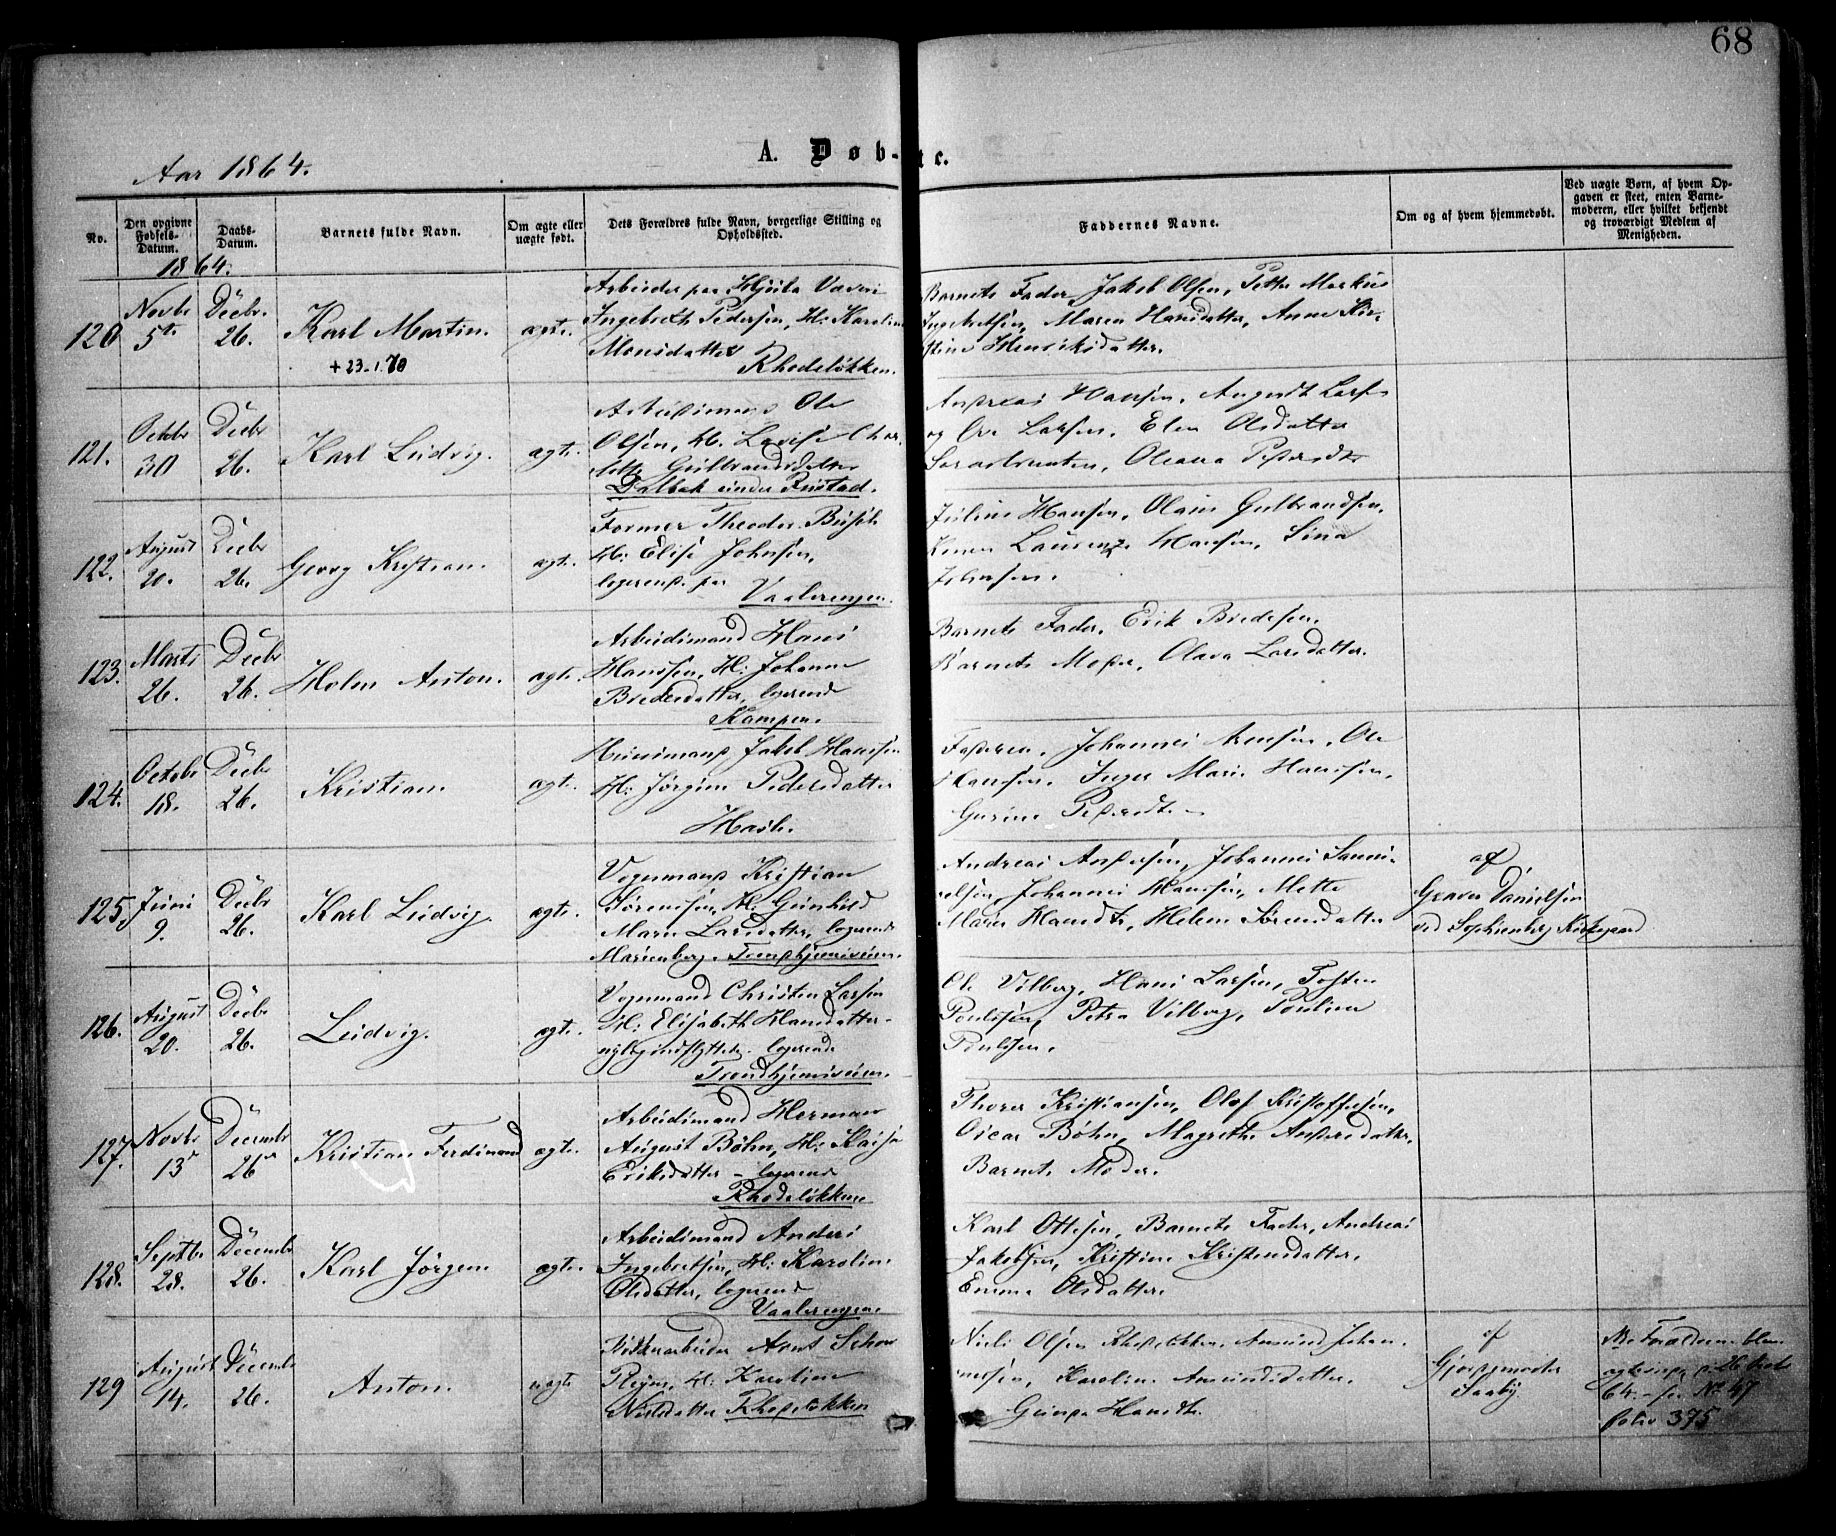 68
Aar 1864.
A. Døb-te.
No.
Den opgivne Fødsels-Datum.
Daabs-Datum.
Barnets fulde Navn.
Om ægte eller uægte født.
Dets Forældres fulde Navn, borgerlige Stilling og Opholdssted.
Faddernes Navne.
Om og af hvem hjemmedøbt.
Ved uægte Børn, af hvem Op-
gaven er skeet, enten Barne-
moderen, eller hvilket bekjendt
og troværdigt Medlem af
Menigheden.
1864.
120
Novbr 5te
Decbr. 26.
Karl Martin.
+ 23-1.70
ægte.
Arbeider paa Hjula Væveri
Ingebrett Pedersen, H: Karoline
Monsdatter
Rhodeløkken.
Barnets Fader, Jakob Olsen, Petter Markus
Ingebretsen, Maren Hansdatter, Anne Kir-
stine Henriksdatter.
121.
Octobr 30
Decbr 26.
Karl Ludvig.
ægte.
Arbeidsmand Ole
Olsen, H: Lovise Char
lotte Gulbrandsdatter
Dalbak under Rustad.
Andreas Hansen, August Larsen
og Ove Larsen, Elen Olsdatter
Oleava Pedersdtr
122.
August 20.
Decbr 26.
Georg Kristian.
ægte.
Former Theodor
H: Elise Johnsen,
logerend. paa
Vaalerengen.
Julius Hansen, Olaus Gulbrandsen,
Laurenze Hansen, Sina
Johnsen.
123.
Marts 26.
Decbr 26.
Holm Anton.
ægte.
Arbeidsmand Hans
Hanssen, H: Johanne
Bredesdatter, logerende
Kampen.
Barnets Fader, Erik Bredesen.
Barnets Moder, Olava Larsdatter.
124.
Octobr 18.
Decbr 26.
Kristian.
ægte.
Huusmand Jakob Hanssen
H: Jørgine Pedersdatter
Hasle.
Faderen, Johannes Arnesen, Ole
Hansen, Inger Marie Hanssen,
Gurine Pedersdtr
125,
Juni 9.
Decbr 26.
Karl Ludvig.
ægte.
Vognmand Kristian
Sørensen, H: Gunhild
Marie Larsdatter, logerende
Marienberg. Trondhjemsveien.
Andreas Andersen, Johannes Sami-
elsen, Johannes Hanssen, Mette
Marie Hansdtr, Helene Sørensdatter
af
Graver Danielsen
ved Sophienberg Kirkegaard
126.
August 20.
Decbr 26.
Ludvig.
ægte.
Vognmand Christen Larsen
H: Elisabeth Hansdatter -
nylig indflyttet. logerende
Trondhjemsveien.
Ol. Vilberg, Hans Larsen, Tosten
Poulsen, Petra Vilberg, Pouline
Poulsen.
127.
Novbr 13
Decembr 26
Kristian Ferdinand
ægte.
Arbeidsmand Herman
August Bøhn, H: Kaisa
Eriksdatter - logerende
Rhodeløkken
Thorer Kristiansen, Olof Kristoffersen,
Oscar Bøhn, Magrethe Andersdatter,
Barnets Moder.
128.
Septbr. 28.
Decembr 26.
Karl Jørgen
ægte.
Arbeidsmand Anders
Ingebertsen, H: Karoline
Olsdatter, logerende
Vaalerengen.
Karl Ottesen, Barnets Fader, Andreas
Jakobsen, Kristine Kristensdatter.
Emma Olsdatter.
129
August 14.
Decembr 26.
Anton.
uægte
Arnt
H: Karoline
Nilsdatter Rhodeløkken
Niels Olsen Rhodeløkken, Amund Johan
nessen, Karoline Amundsdatter,
Hansdtr.
af
Gjordemoder
Saaby.
No Forældrene blev
64 - No 47
folio 375